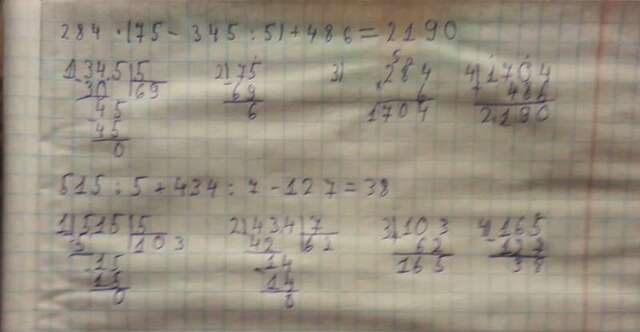 284 · (75 - 345 : 5) + 486 = 2190
1) 345 | 5 2) 75 3) 284 4) 1704
30 69 69 6 486
45 6 1704 2190
45
0
515 : 5 + 434 : 7 - 127 = 38
1) 515 | 5 2) 434 | 7 3) 103 4) 165
5 103 42 62 62 127
15 14 165 38
15 14
0 0